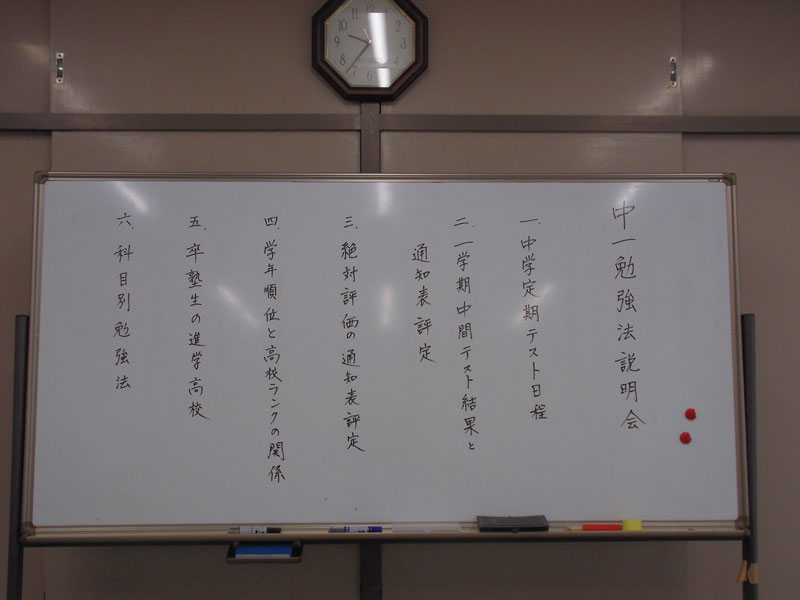 中一勉強法説明会
一.中学定期テスト日程
二.一学期中間テスト結果と
通知表評定
三.絶対評価の通知表評定
四.学年順位と高校ランクの関係
五.卒塾生の進学高校
六.科目別勉強法
12
1
2
3
4
5
6
7
8
9
10
11